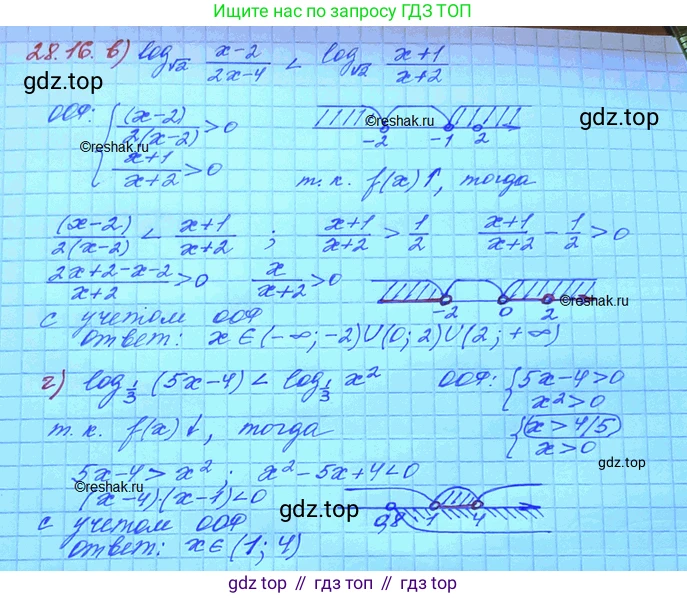 Ищите нас по запросу ГДЗ ТОП
28.16. в) log_{√2} (x-2)/(2x-4) < log_{√2} (x+1)/(x+2)
gdz.top
ООФ: { (x-2)/(2(x-2)) > 0
(x+1)/(x+2) > 0
-2 -1 2
©reshak.ru
©reshak.ru
gdz.top
т.к. f(x)↑, тогда
(x-2)/(2(x-2)) < (x+1)/(x+2) ; (x+1)/(x+2) > 1/2 (x+1)/(x+2) - 1/2 > 0
(2x+2-x-2)/(x+2) > 0 x/(x+2) > 0
-2 0 2
©reshak.ru
с учетом ООФ
ответ: x∈(-∞;-2)∪(0;2)∪(2;+∞)
г) log_{1/3} (5x-4) < log_{1/3} x² ООФ: { 5x-4>0
x²>0
т.к. f(x)↓, тогда { x>4/5
x>0
gdz.top
5x-4 > x² ; x²-5x+4<0
©reshak.ru
(x-4)·(x-1)<0
0,8 1 4
gdz.top
с учетом ООФ
ответ: x∈(1; 4)
gdz топ // гдз топ // гдз.top